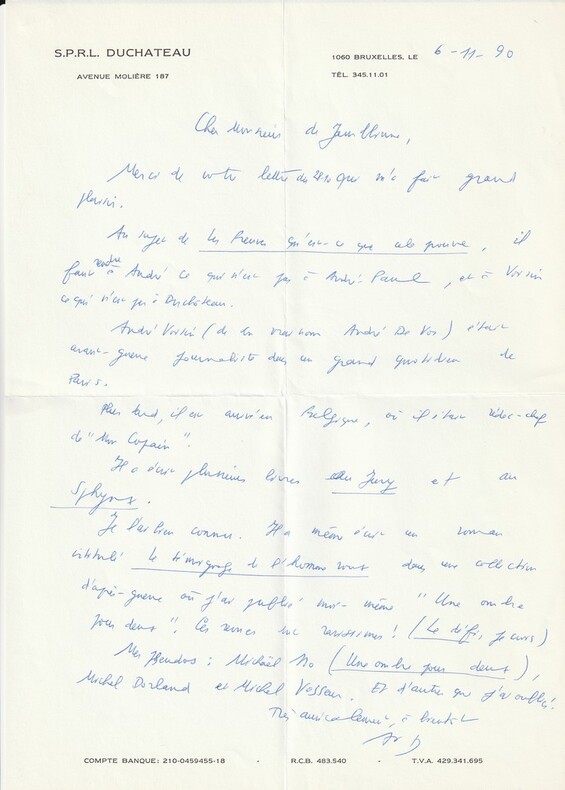 S.P.R.L. DUCHATEAU
AVENUE MOLIÈRE 187
1060 BRUXELLES, LE 6-11-90
TÉL. 345.11.01
Cher Monsieur de
Merci de votre lettre qui m'a fait grand
plaisir.
Au sujet de les Preuves qu'est-ce que cela prouve, il
faut rendre à André ce qui n'est pas à André-Paul, et à Voisin
ce qui n'est pas à Duchâteau.
André Voisin (de son vrai nom André De Vos) était
avant-guerre journaliste dans un grand quotidien de
Paris.
Plus tard, il est arrivé en Belgique, où il était rédac-chef
de "Mon Copain".
Il a écrit plusieurs livres au Jury et au
Sphynx.
Je l'ai bien connu. Il a même écrit un roman
intitulé le témoignage de dans une collection
d'après-guerre où j'ai publié moi-même "Une ombre
pour deux". Ces romans sont rarissimes! (Le défi, je crois)
Mes pseudos: Michaël No (Une ombre pour deux),
Michel Dorland et Michel Vasseur. Et d'autres que j'ai oubliés!
Très amicalement, à bientôt
COMPTE BANQUE: 210-0459455-18 - R.C.B. 483.540 - T.V.A. 429.341.695